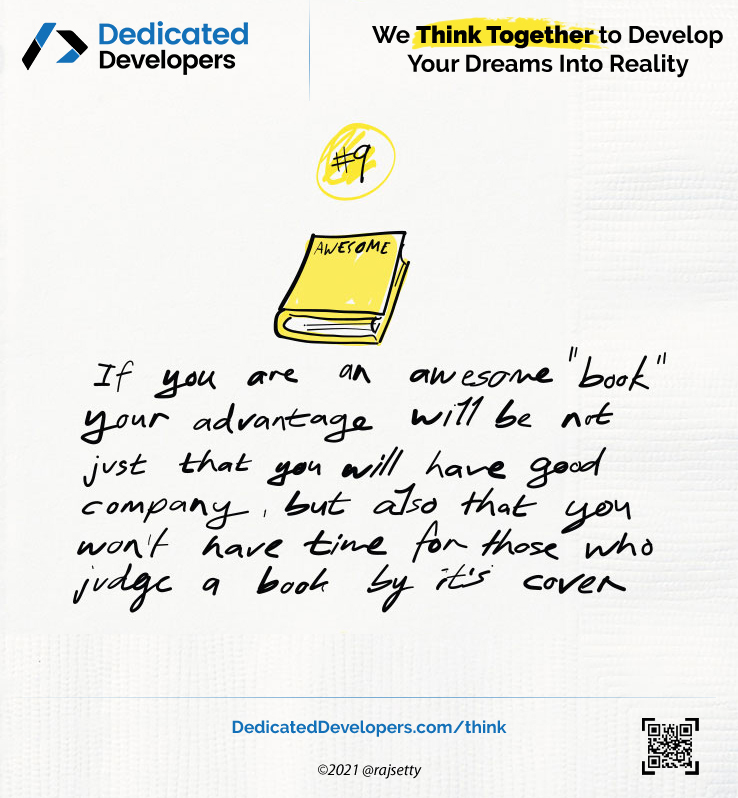 Dedicated
Developers
We Think Together to Develop
Your Dreams Into Reality
#9
AWESOME
If you are an awesome "book"
your advantage will be not
just that you will have good
company, but also that you
won't have time for those who
judge a book by it's cover
DedicatedDevelopers.com/think
©2021 @rajsetty